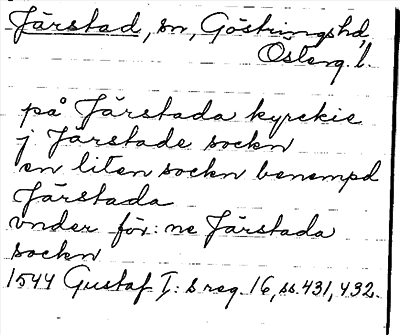 Järstad, sn, Göstringshd,
Österg. l.
på Järstada kyrckie
j Järstade sockn
en liten sockn benempd
Järstada
vnder för: ne Järstada
sockn
1544 Gustaf I: s reg. 16, ss. 431, 432.